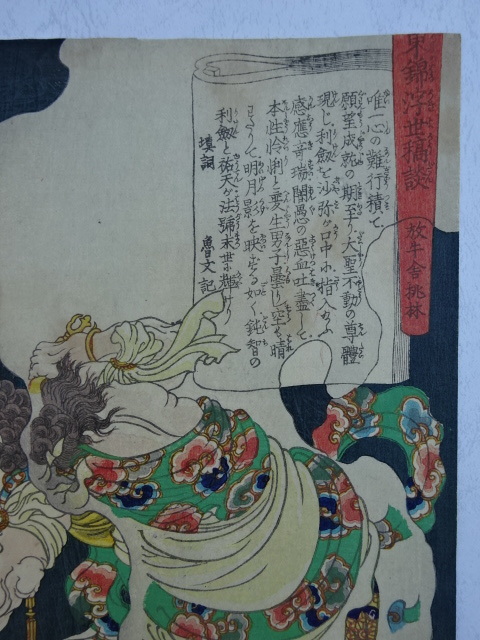 東錦浮世稿談
放牛舎桃林
唯一心の難行積で
願望成就の期至り大聖不動の尊體
現じ利劔を沙弥が口中に指入たまふ
感應奇瑞闇愚の惡血吐盡して
本性怜悧と変生男子曇りし空も晴
さりて明月影を映ずる如く鈍智の
利劔と祐天が法號末世に輝けり
填詞
魯文記